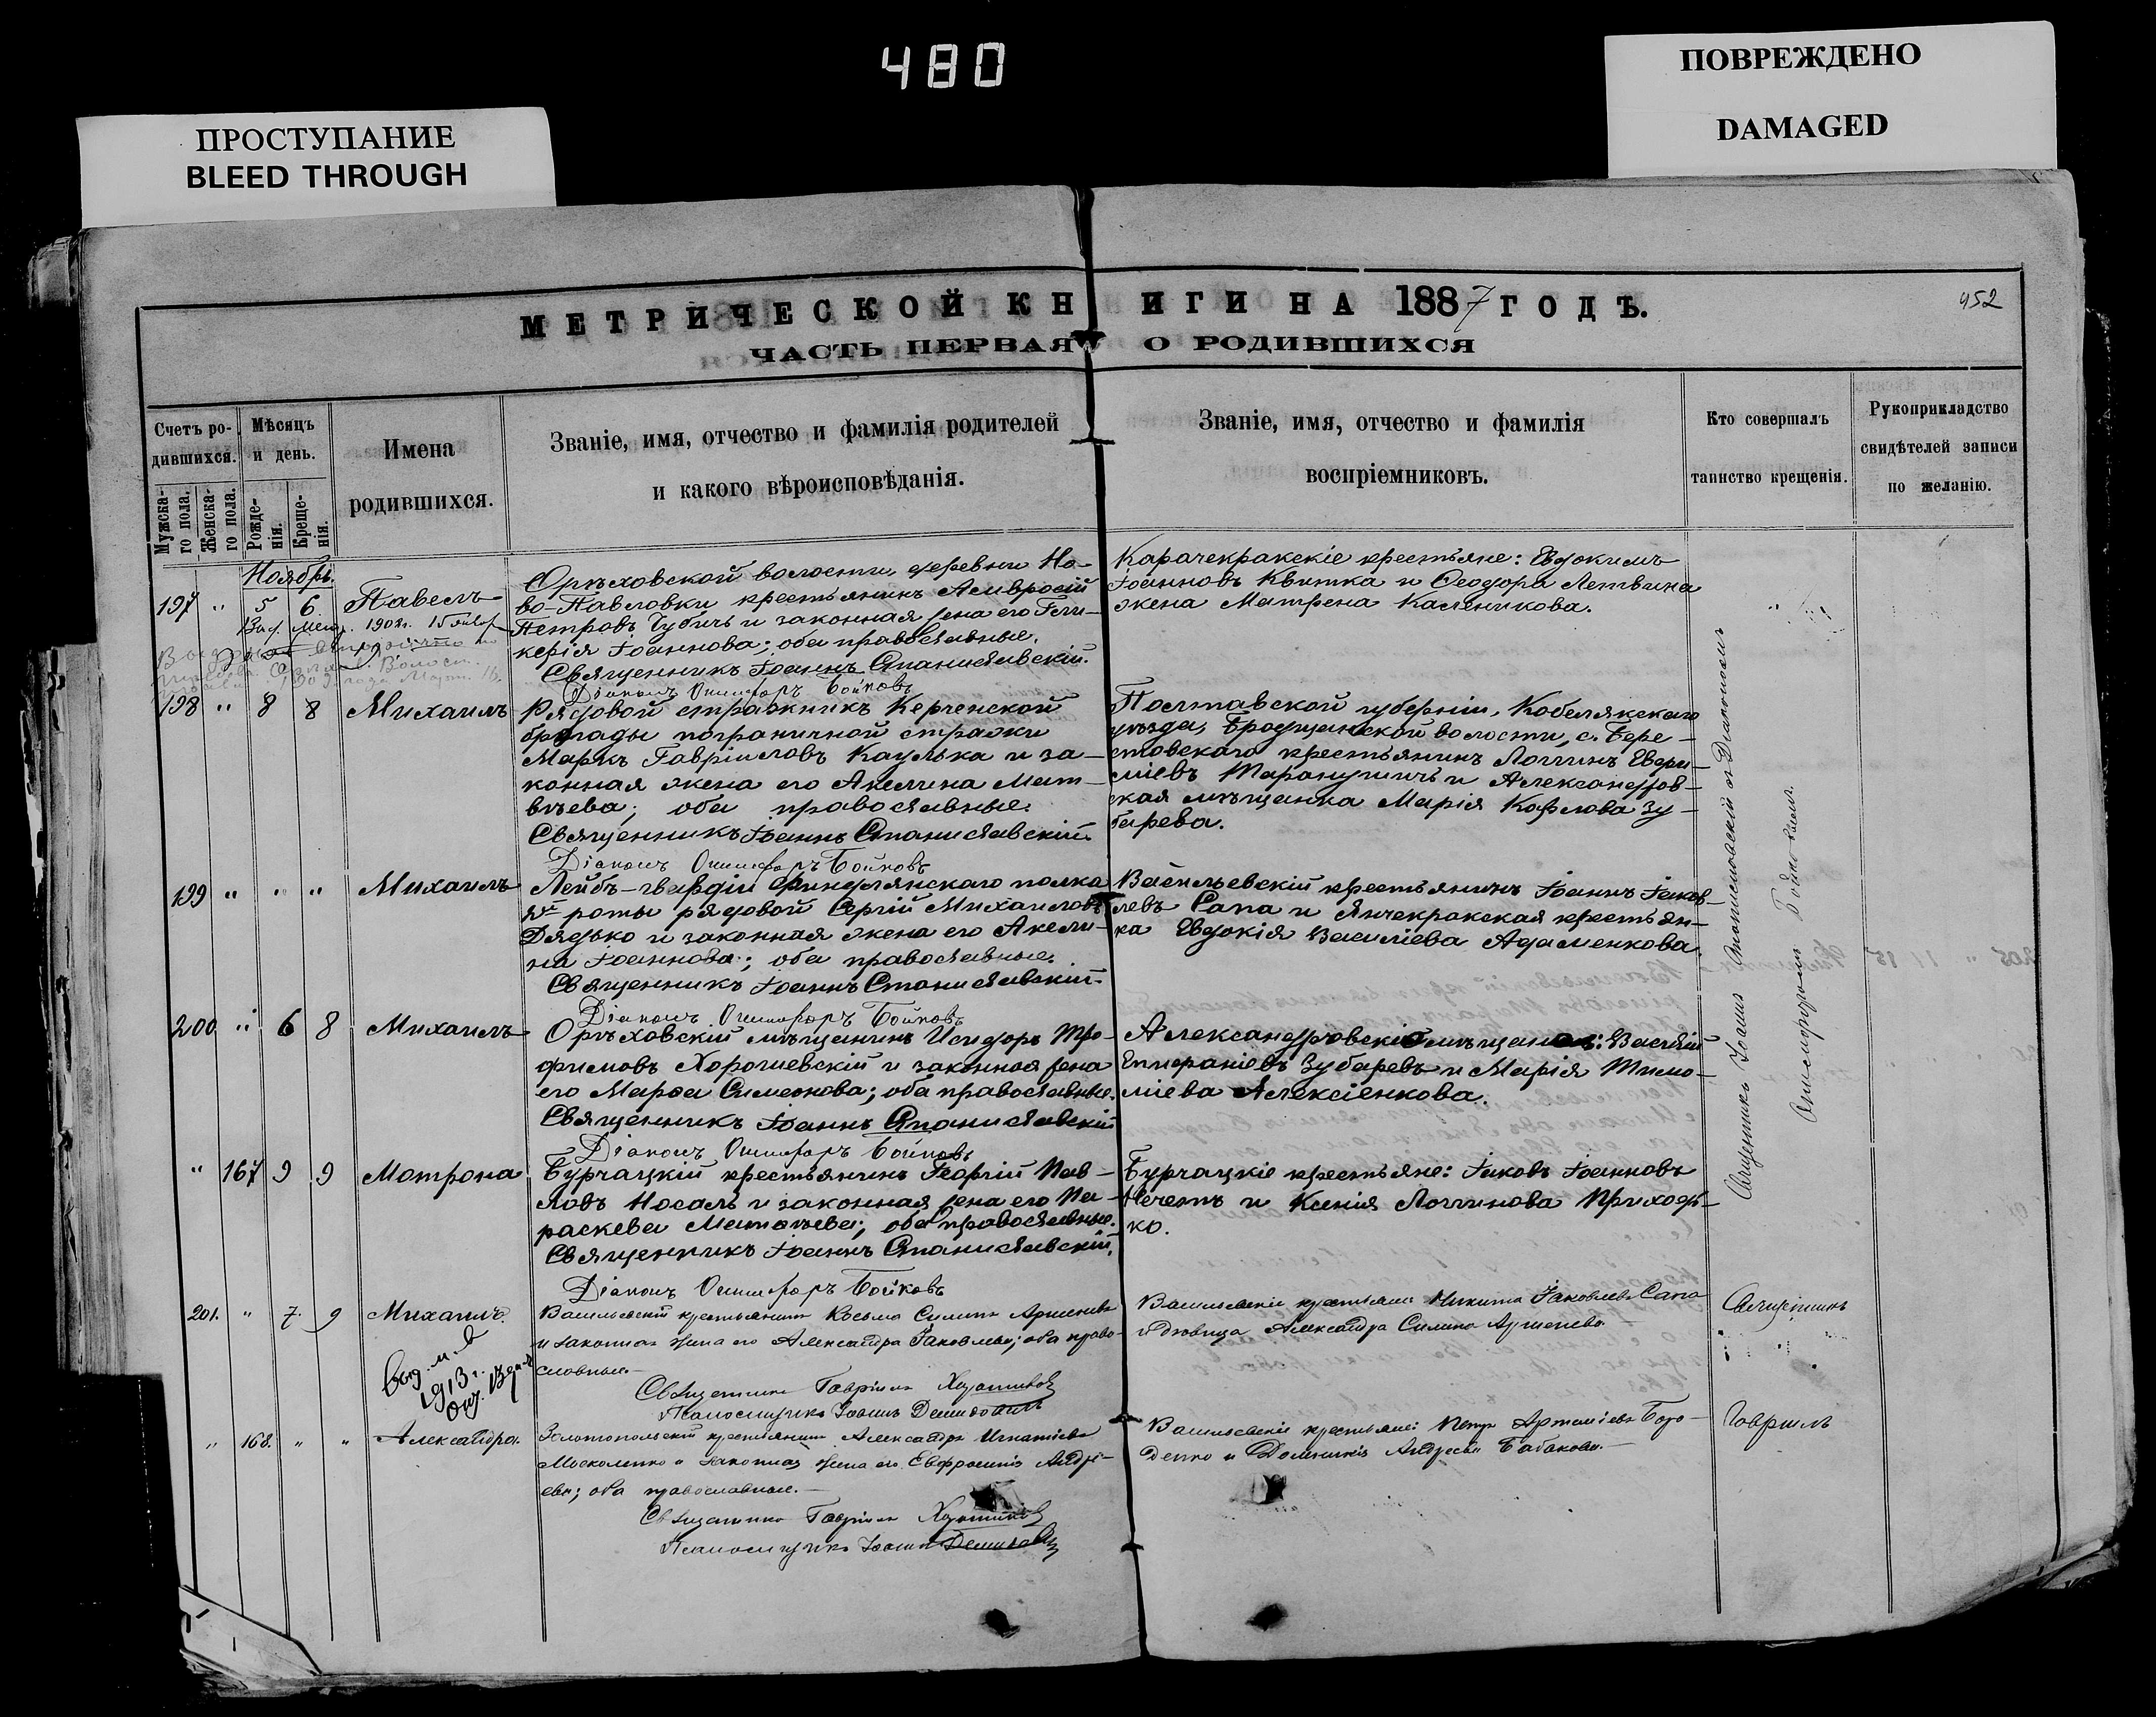 480
ПРОСТУПАНИЕ
BLEED THROUGH
ПОВРЕЖДЕНО
DAMAGED
452
МЕТРИЧЕСКОЙ КНИГИ НА 1887 ГОДЪ.
ЧАСТЬ ПЕРВАЯ О РОДИВШИХСЯ
Счетъ ро-
дившихся.
Мужска-
го пола.
Женска-
го пола.
Мѣсяцъ
и день.
Рожде-
нія.
Креще-
нія.
Имена
родившихся.
Званіе, имя, отчество и фамилія родителей
и какого вѣроисповѣданія.
Званіе, имя, отчество и фамилія
воспріемниковъ.
Кто совершалъ
таинство крещенія.
Рукоприкладство
свидѣтелей записи
по желанію.
Ноябрь.
197 " 5 6. Павелъ
1902г.
Орѣховской волости, деревни Но-
во-Павловки крестьянинъ Амвросій
Петровъ Чубичъ и законная жена его Гли-
керія Іоаннова; оба православные.
Священникъ Іоаннъ Станиславскій.
Діаконъ Онисифоръ Бойковъ
Карачекракскіе крестьяне: Евдокимъ
Іоанновъ Квитка и Ѳеодора Летвина
жена Матрена Каленикова.
198 " 8 8 Михаилъ
Рядовой стражникъ Керченской
бригады пограничной стражи
Маркъ Гавріиловъ Каулька и за-
конная жена его Акилина Мат-
вѣева; оба православные.
Священникъ Іоаннъ Станиславскій
Діаконъ Онисифоръ Бойковъ
Полтавской губерніи, Кобелякскаго
уѣзда, Бродщанской волости, с. Бере-
стовскаго крестьянинъ Логгинъ
Таранушичъ и Александров-
ская мѣщанка Марія Карлова Зу-
барева.
199 " " " Михаилъ
Лейбъ-гвардіи Финляндскаго полка
роты рядовой Сергій Михаиловъ
Дядько и законная жена его Акели-
на Іоаннова; оба православные.
Священникъ Іоаннъ Станиславскій
Діаконъ Онисифоръ Бойковъ
Васильевскій крестьянинъ Іоаннъ Іаков-
левъ Сапа и Янчекракская крестьян-
ка Евдокія Василіева Адаменкова.
200 " 6 8 Михаилъ
Орѣховскій мѣщанинъ Исидоръ Тро-
фимовъ Хорошевскій и законная жена
его Марѳа Симеонова; оба православные.
Священникъ Іоаннъ Станиславскій
Діаконъ Онисифоръ Бойковъ
Александровскіе мѣщане: Василій
Епифаніевъ Зубаревъ и Марія Тимо-
ѳіева Алексіенкова.
" 167 9 9 Мотрона
Бурчацкій крестьянинъ Георгій Пав-
ловъ Носаль и законная жена его Па-
раскева Матѳѣева; оба православные.
Священникъ Іоаннъ Станиславскій.
Діаконъ Онисифоръ Бойковъ
Бурчацкіе крестьяне: Іаковъ Іоанновъ
Нечетъ и Ксенія Логгинова Приходь-
ко.
Священникъ Іоаннъ Станиславскій и Діаконъ
Онисифоромъ Бойковымъ.
201. " 7. 9 Михаилъ.
1913 г.
Васильевскій крестьянинъ Косьма Силинъ
и законная жена его Александра Іаковлева; оба право-
славные.
Священникъ Гавріилъ
Псаломщикъ Іоаннъ Демидовичъ
Васильевскіе крестьяне Никита Іаковлевъ Сапа
и дѣвица Александра Силина
Священникъ
" 168. " " Александра.
Золотопольскій крестьянинъ Александръ Игнатіевъ
Москаленко и законная жена его Евфросинія Андре-
ева; оба православные.
Священникъ Гавріилъ
Псаломщикъ Іоаннъ Демидовичъ
Васильевскіе крестьяне: Петръ Артеміевъ Боро-
денко и Домникія Андреева Бабакова.
Гавріилъ